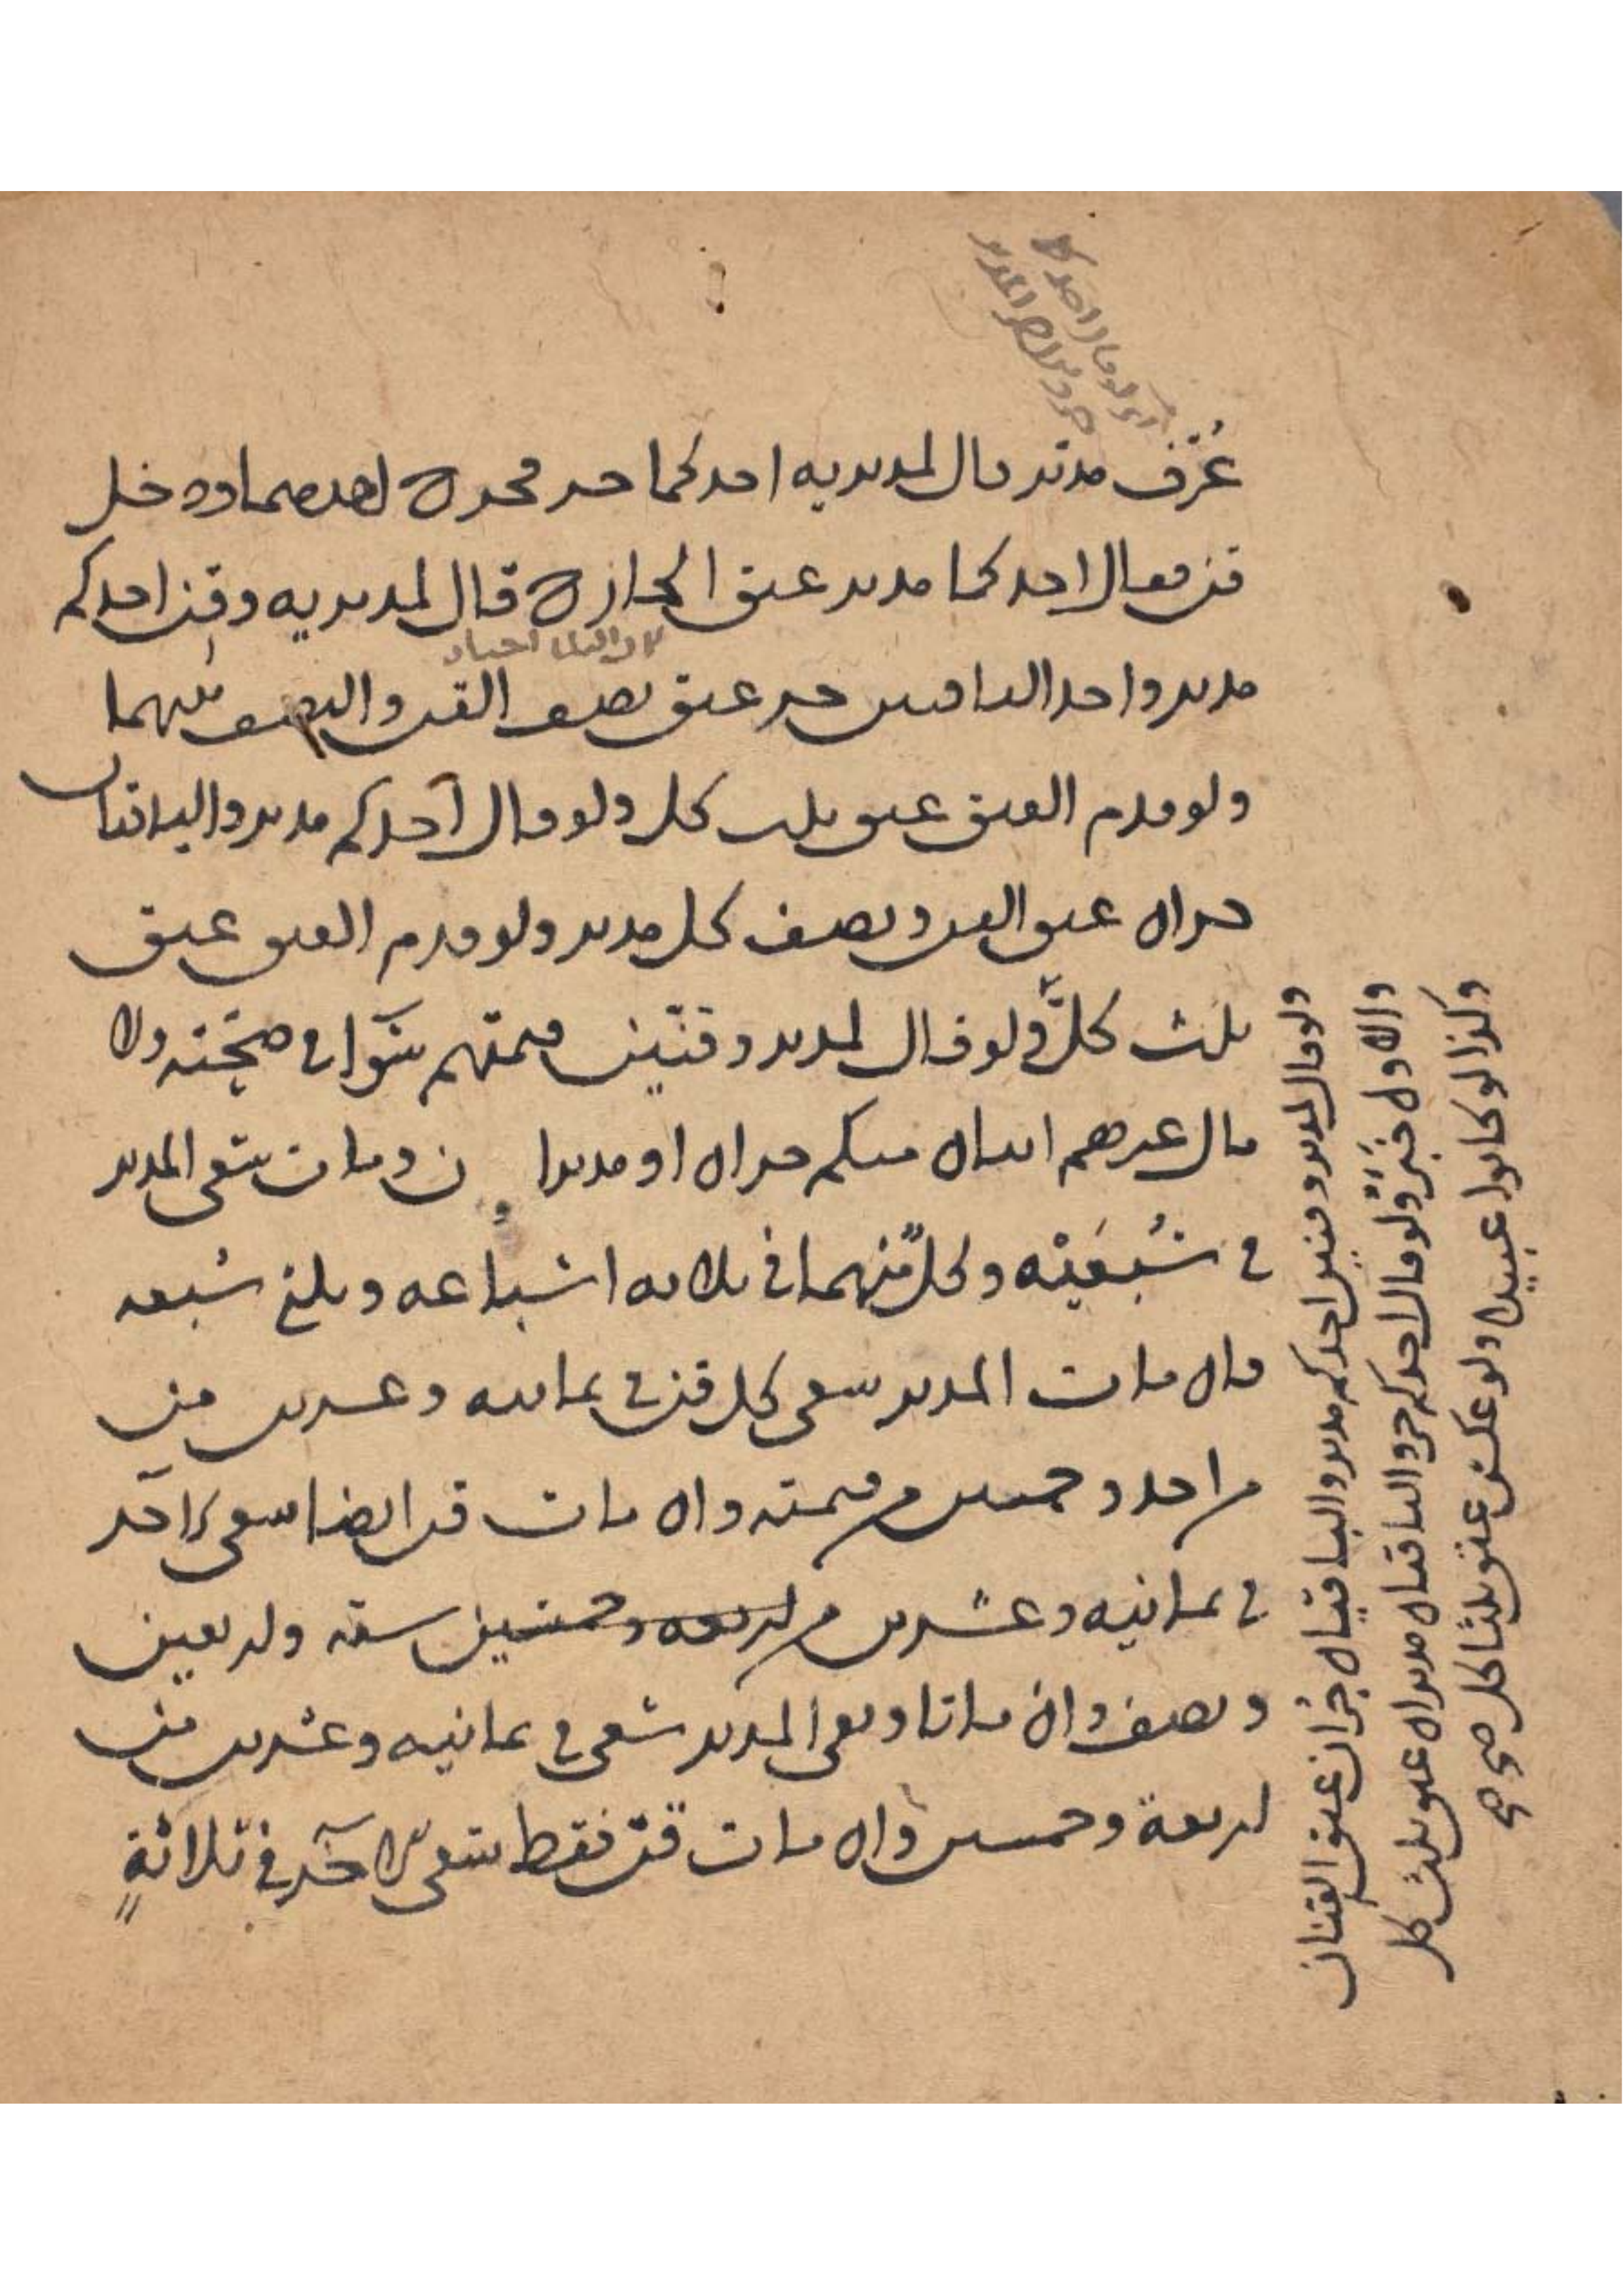 عُرف مدبر قال لمدبريه احدكما حر فخرج احدهما ودخل
قن فقال احدكما مدبر عتق الخارج قال لمدبريه وقن احدكم
مدبر واحد الباقيين حر عتق نصف القن والنصف منهما
ولو قدم العتق عتق ثلث كل ولو قال احدكم مدبر والباقيان
حران عتق القن ونصف كل مدبر ولو قدم العتق عتق
ثلث كلٍّ ولو قال لمدبر وقنين قيمتهم سَوَا في صحته ولا
مال غيرهم اثنان منكم حران او مدبران ومات سعى المدبر
في سُبعَيْه وكلٌّ منهما في ثلاثه اسباعه وثلث سُبعه
فان مات المدبر سعى كل قن في ثمانيه وعشرين من
من احد وخمسين من قيمته وان مات قن ايضا سعى الآخر
في ثمانيه وعشرين من اربعه وخمسين سته واربعين
ونصف وان ماتا وبقي المدبر سعى في ثمانيه وعشرين من
اربعة وخمسين وان مات قن فقط سعى الآخر في ثلاثةٍ
ولو قال لمدبر وقنين احدكم مدبر والباقيان حُران عتق القنان
والاول ولو قال احدكم حر والباقيان مدبران عتق ثلث كل
وكذا لو كانوا عبيدا ولو عكس عتق ثلثا كل صح